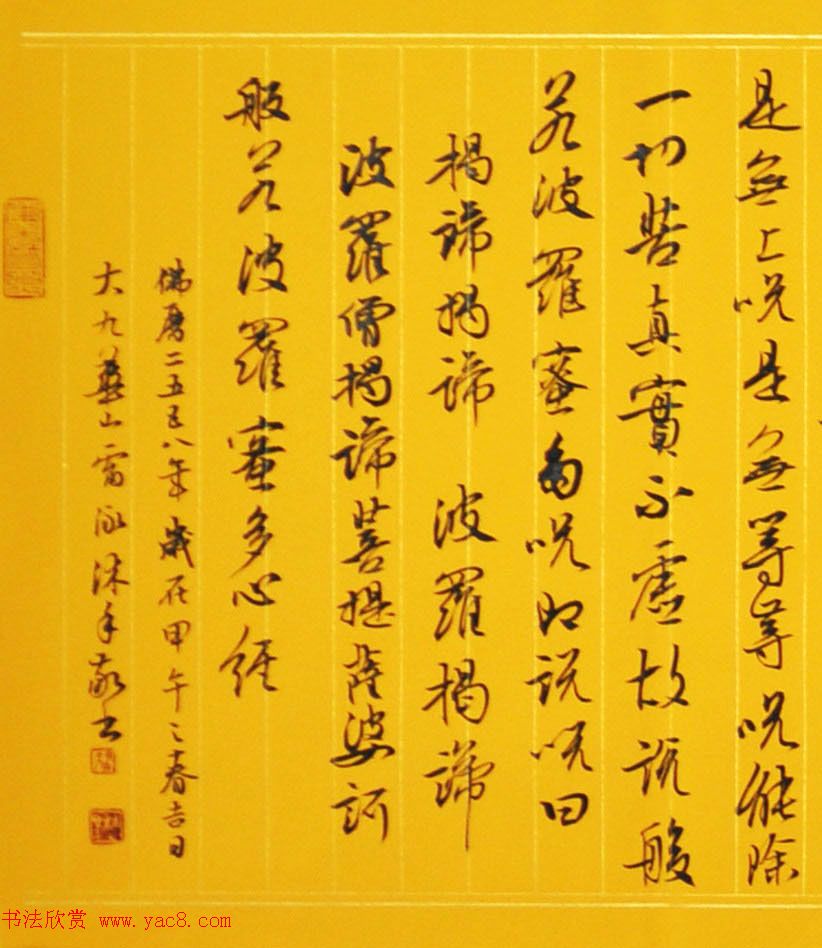 是無上呪是無等等呪能除
一切苦真實不虛故說般
若波羅蜜多呪即說呪曰
揭諦揭諦 波羅揭諦
波羅僧揭諦菩提薩婆訶
般若波羅蜜多心經
佛曆二五五八年歲在甲午之春吉日
大九華山雷沐手敬书
书法欣赏 www.yac8.com